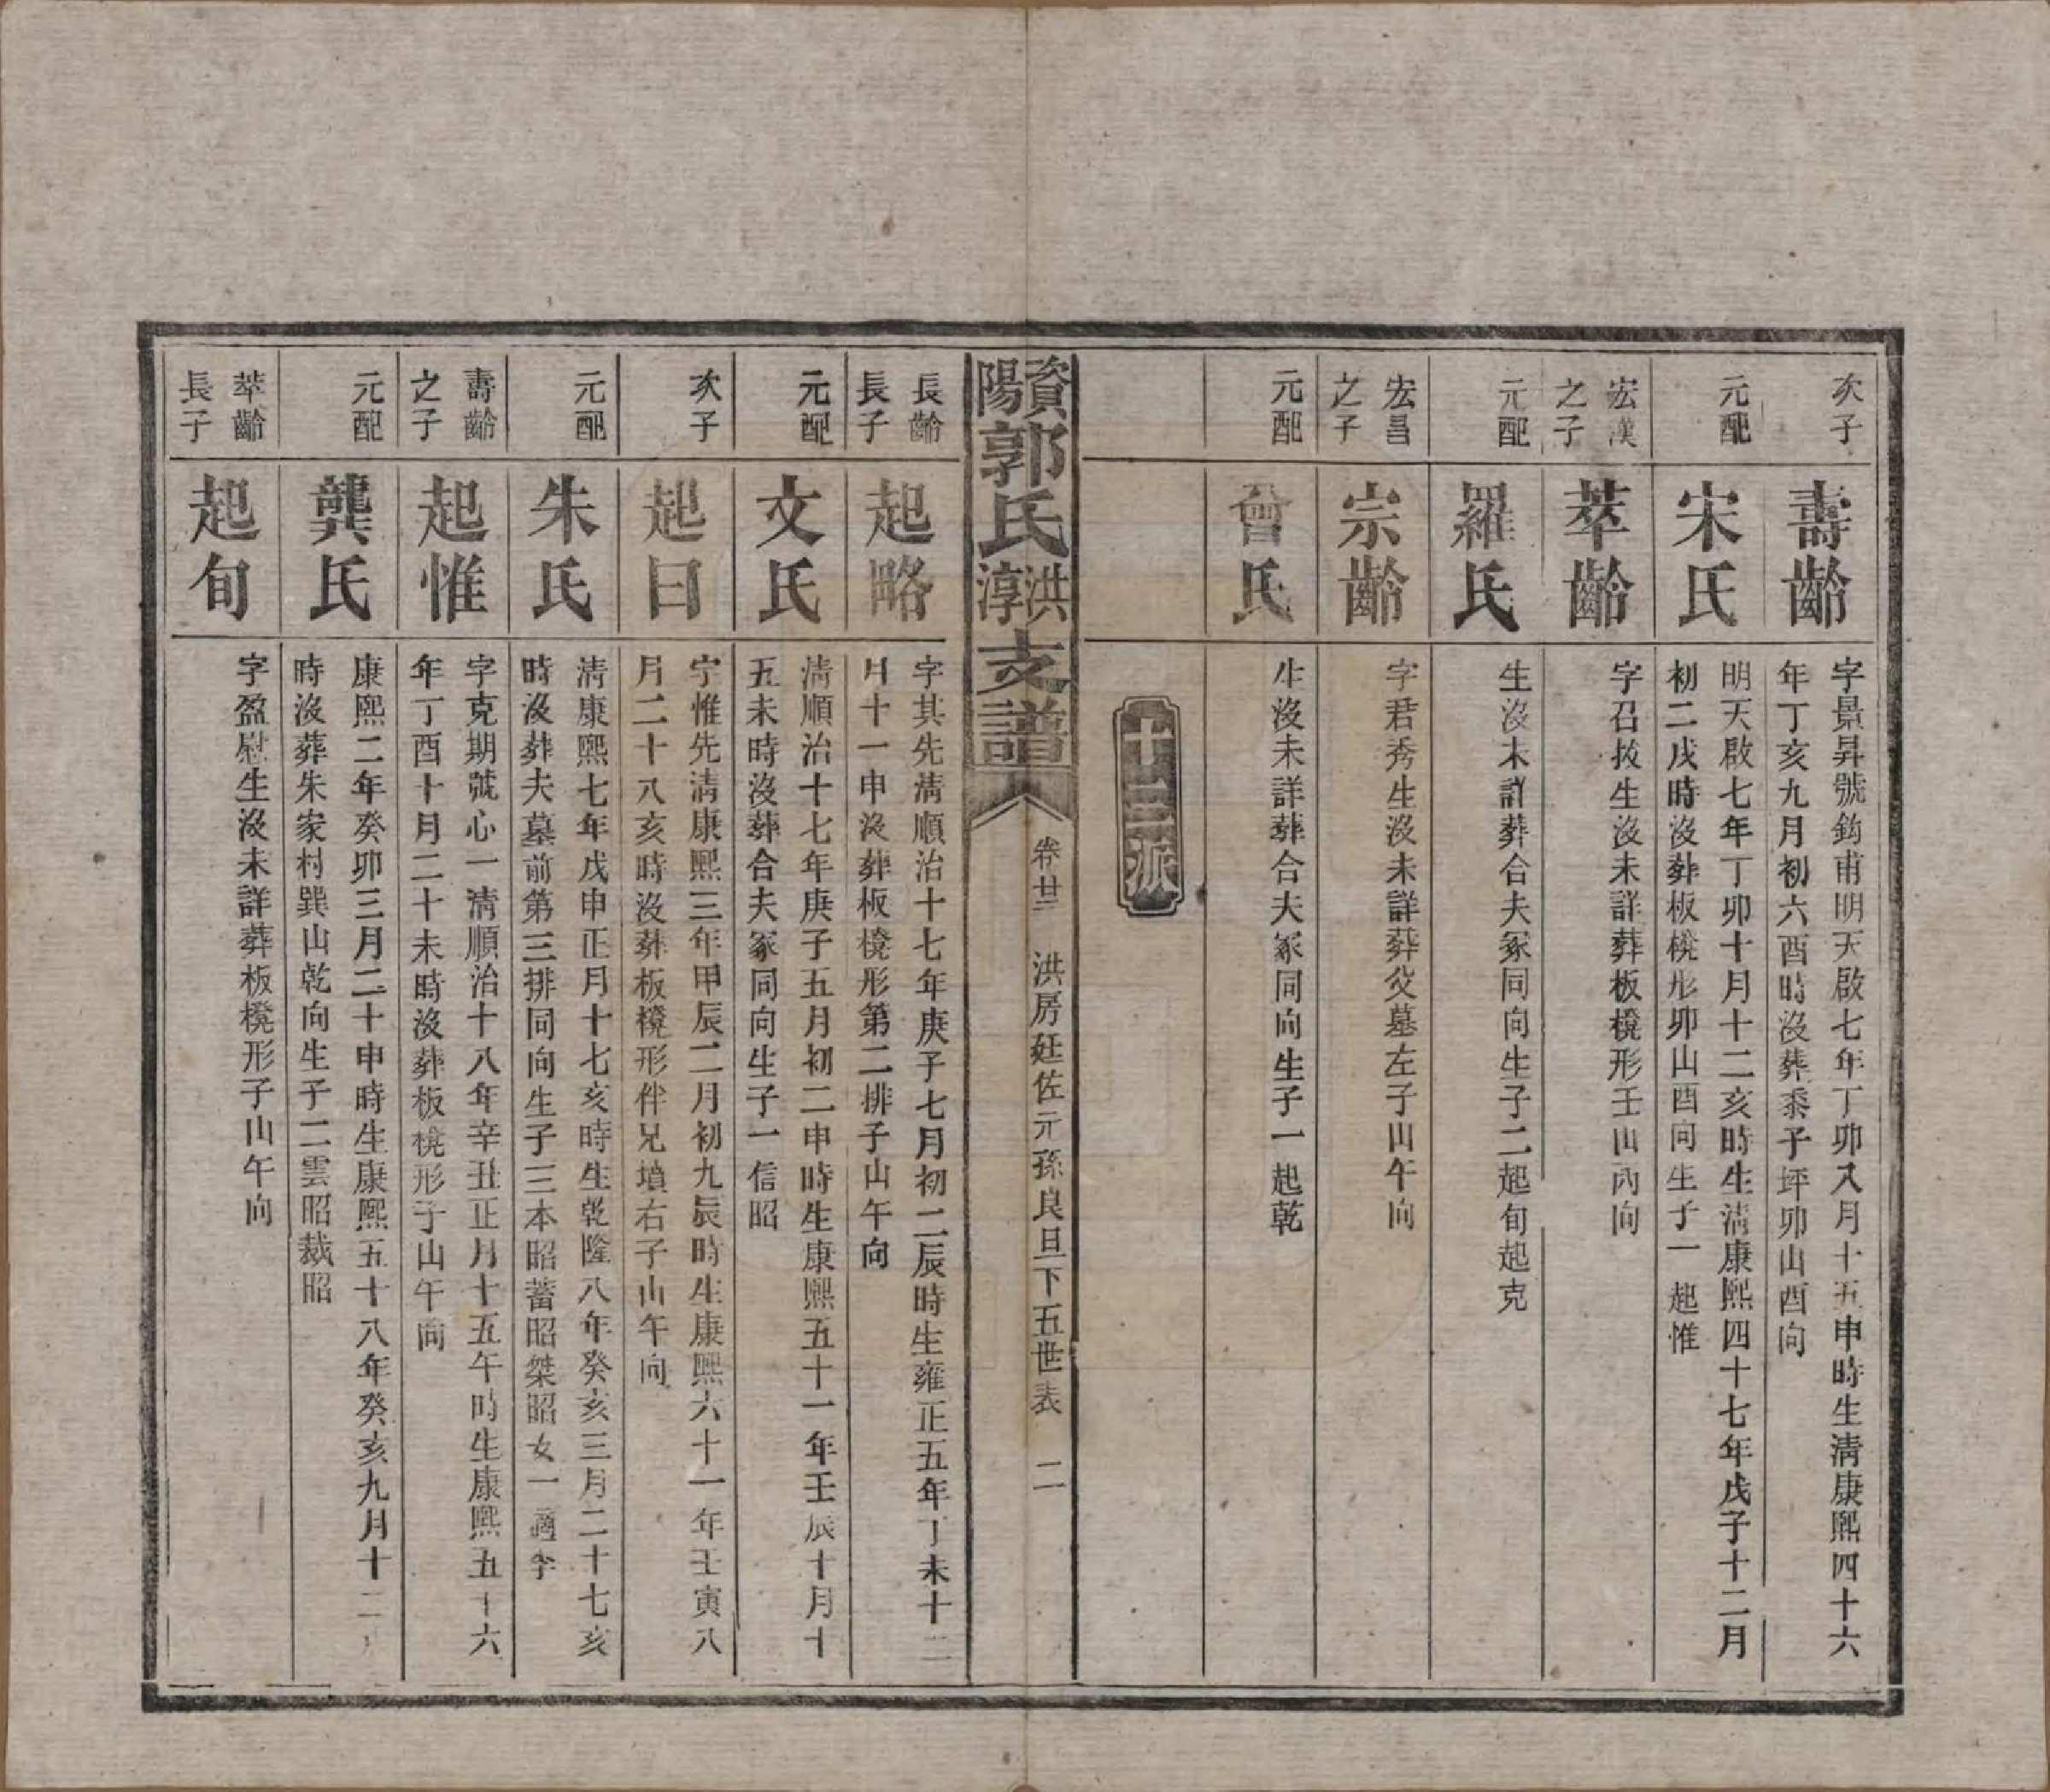 次子
壽齡
字景昇號鈞甫明天啟七年丁卯八月十五申時生淸康熙四十六
年丁亥九月初六酉時沒葬黍子坪卯山酉向
元配
宋氏
明天啟七年丁卯十月十二亥時生淸康熙四十七年戊子十二月
初二戌時沒葬板櫈形卯山酉向生子一起惟
宏漢
之子
萃齡
字召拔生沒未詳葬板櫈形壬山丙向
元配
羅氏
生沒未詳葬合夫冢同向生子二起旬起克
宏昌
之子
宗齡
字君秀生沒未詳葬父墓左子山午向
元配
曾氏
生沒未詳葬合夫冢同向生子一起乾
十三派
資陽郭氏洪淳支譜
卷廿三
洪房廷佐元孫良旦下五世表
二
長齡
長子
起略
字其先淸順治十七年庚子七月初二辰時生雍正五年丁未十二
月十一申沒葬板櫈形第二排子山午向
元配
文氏
淸順治十七年庚子五月初二申時生康熙五十一年壬辰十月十
五未時沒葬合夫冢同向生子一信昭
次子
起曰
字惟先淸康熙三年甲辰二月初九辰時生康熙六十一年壬寅八
月二十八亥時沒葬板櫈形伴兄墳右子山午向
元配
朱氏
淸康熙七年戊申正月十七亥時生乾隆八年癸亥三月二十七亥
時沒葬夫墓前第三排同向生子三本昭蓄昭桀昭女一適李
壽齡
之子
起惟
字克期號心一淸順治十八年辛丑正月十五午時生康熙五十六
年丁酉十月二十未時沒葬板櫈形子山午向
元配
龔氏
康熙二年癸卯三月二十申時生康熙五十八年癸亥九月十二
時沒葬朱家村巽山乾向生子二雲昭裁昭
萃齡
長子
起旬
字盈慰生沒未詳葬板櫈形子山午向